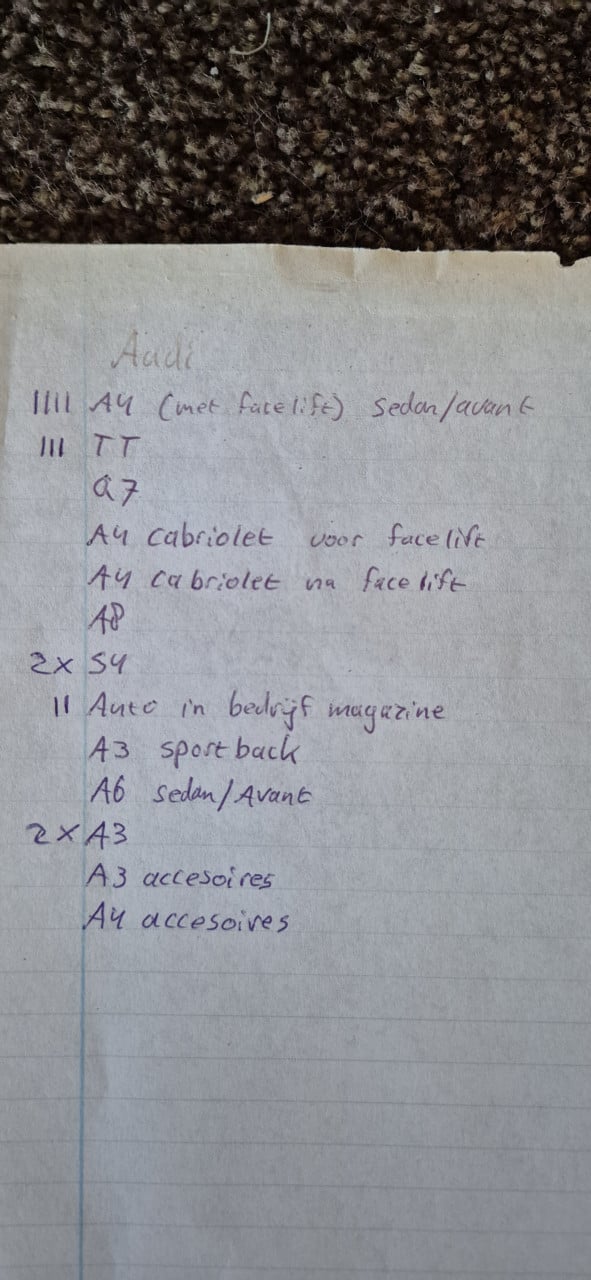 Audi
IIII A4 (met facelift) sedan/avant
III TT
Q7
A4 cabriolet voor facelift
A4 cabriolet na facelift
A8
2x S4
II Auto in bedrijf magazine
A3 sportback
A6 sedan/Avant
2x A3
A3 accesoires
A4 accesoires